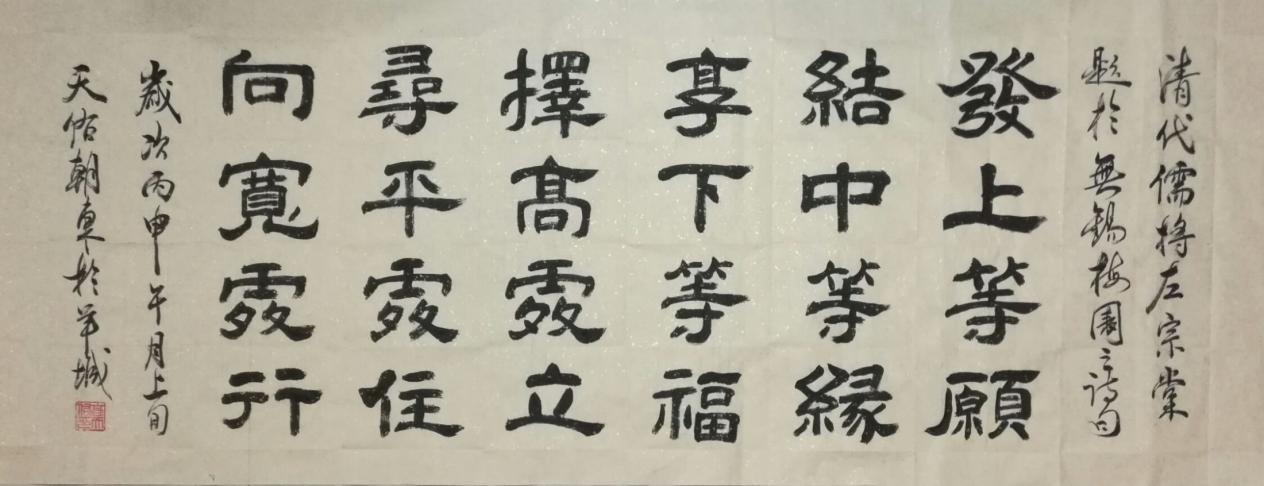 清代儒將左宗棠
題於無錫梅園之詩句
發上等願
結中等緣
享下等福
擇高處立
尋平處住
向寬處行
歲次丙申午月上旬
天佑朝卓於羊城